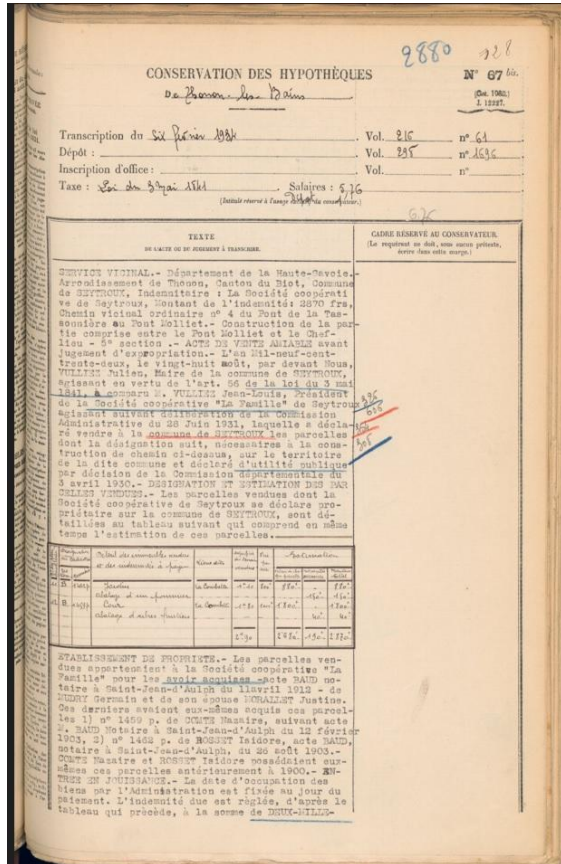 2880 928
CONSERVATION DES HYPOTHÈQUES
N° 67 bis.
De Thonon-les-Bains
J. 12227.
Transcription du Six février 1934 Vol. 216 n° 61
Dépôt : Vol. 295 n° 1696
Inscription d'office : Vol. n°
Taxe : Loi du 3 mai 1841 Salaires : 5,76
(Intitulé réservé à l'usage du conservateur.)
TEXTE
DE L'ACTE OU DU JUGEMENT À TRANSCRIRE.
CADRE RÉSERVÉ AU CONSERVATEUR.
(Le requérant ne doit, sous aucun prétexte,
écrire dans cette marge.)
SERVICE VICINAL.- Département de la Haute-Savoie.-
Arrondissement de Thonon, Canton du Biot, Commune
de SEYTROUX, Indemnitaire : La Société coopérati
ve de Seytroux, Montant de l'indemnité: 2870 frs,
Chemin vicinal ordinaire n° 4 du Pont de la Tas-
sonnière au Pont Molliet.- Construction de la par
tie comprise entre le Pont Molliet et le Chef-
lieu - 5° section .- ACTE DE VENTE AMIABLE avant
jugement d'expropriation.- L'an Mil-neuf-cent-
trente-deux, le vingt-huit août, par devant Nous,
VULLIEZ Julien, Maire de la commune de SEYTROUX,
agissant en vertu de l'art. 56 de la loi du 3 mai
1841, a comparu M. VULLIEZ Jean-Louis, Président
de la Société coopérative "La Famille" de Seytroux
agissant suivant délibération de la Commission
Administrative du 28 Juin 1931, laquelle a décla-
ré vendre à la commune de SEYTROUX les parcelles
dont la désignation suit, nécessaires à la cons-
truction de chemin ci-dessus, sur le territoire
de la dite commune et déclaré d'utilité publique
par décision de la Commission départementale du
3 avril 1930.- DESIGNATION ET ESTIMATION DES PAR
CELLES VENDUES.- Les parcelles vendues dont la
Société coopérative de Seytroux se déclare pro-
priétaire sur la commune de SEYTROUX, sont dé-
taillées au tableau suivant qui comprend en même
temps l'estimation de ces parcelles.
Détail des immeubles vendus
et des indemnités à payer
Lieux dits
Estimation
B. Jardin
abatage d'un pommier
B. Cour
abatage d'arbres fruitiers
2°90 190 2870
ETABLISSEMENT DE PROPRIETE.- Les parcelles ven-
dues appartenaient à la Société coopérative "La
Famille" pour les avoir acquises -acte BAUD no-
taire à Saint-Jean-d'Aulph du 11avril 1912 - de
Germain et de son épouse MORALLET Justine.
Ces derniers avaient eux-mêmes acquis ces parcel-
les 1) n° 1459 p. de COMTE Nazaire, suivant acte
M. BAUD Notaire à Saint-Jean-d'Aulph du 12 février
1903, 2) n° 1462 p. de ROSSET Isidore, acte BAUD,
notaire à Saint-Jean-d'Aulph, du 26 août 1903.-
COMTE Nazaire et ROSSET Isidore possédaient eux-
mêmes ces parcelles antérieurement à 1900.- EN-
TREE EN JOUISSANCE.- La date d'occupation des
biens par l'Administration est fixée au jour du
paiement. L'indemnité due est réglée, d'après le
tableau qui précède, à la somme de DEUX-MILLE-